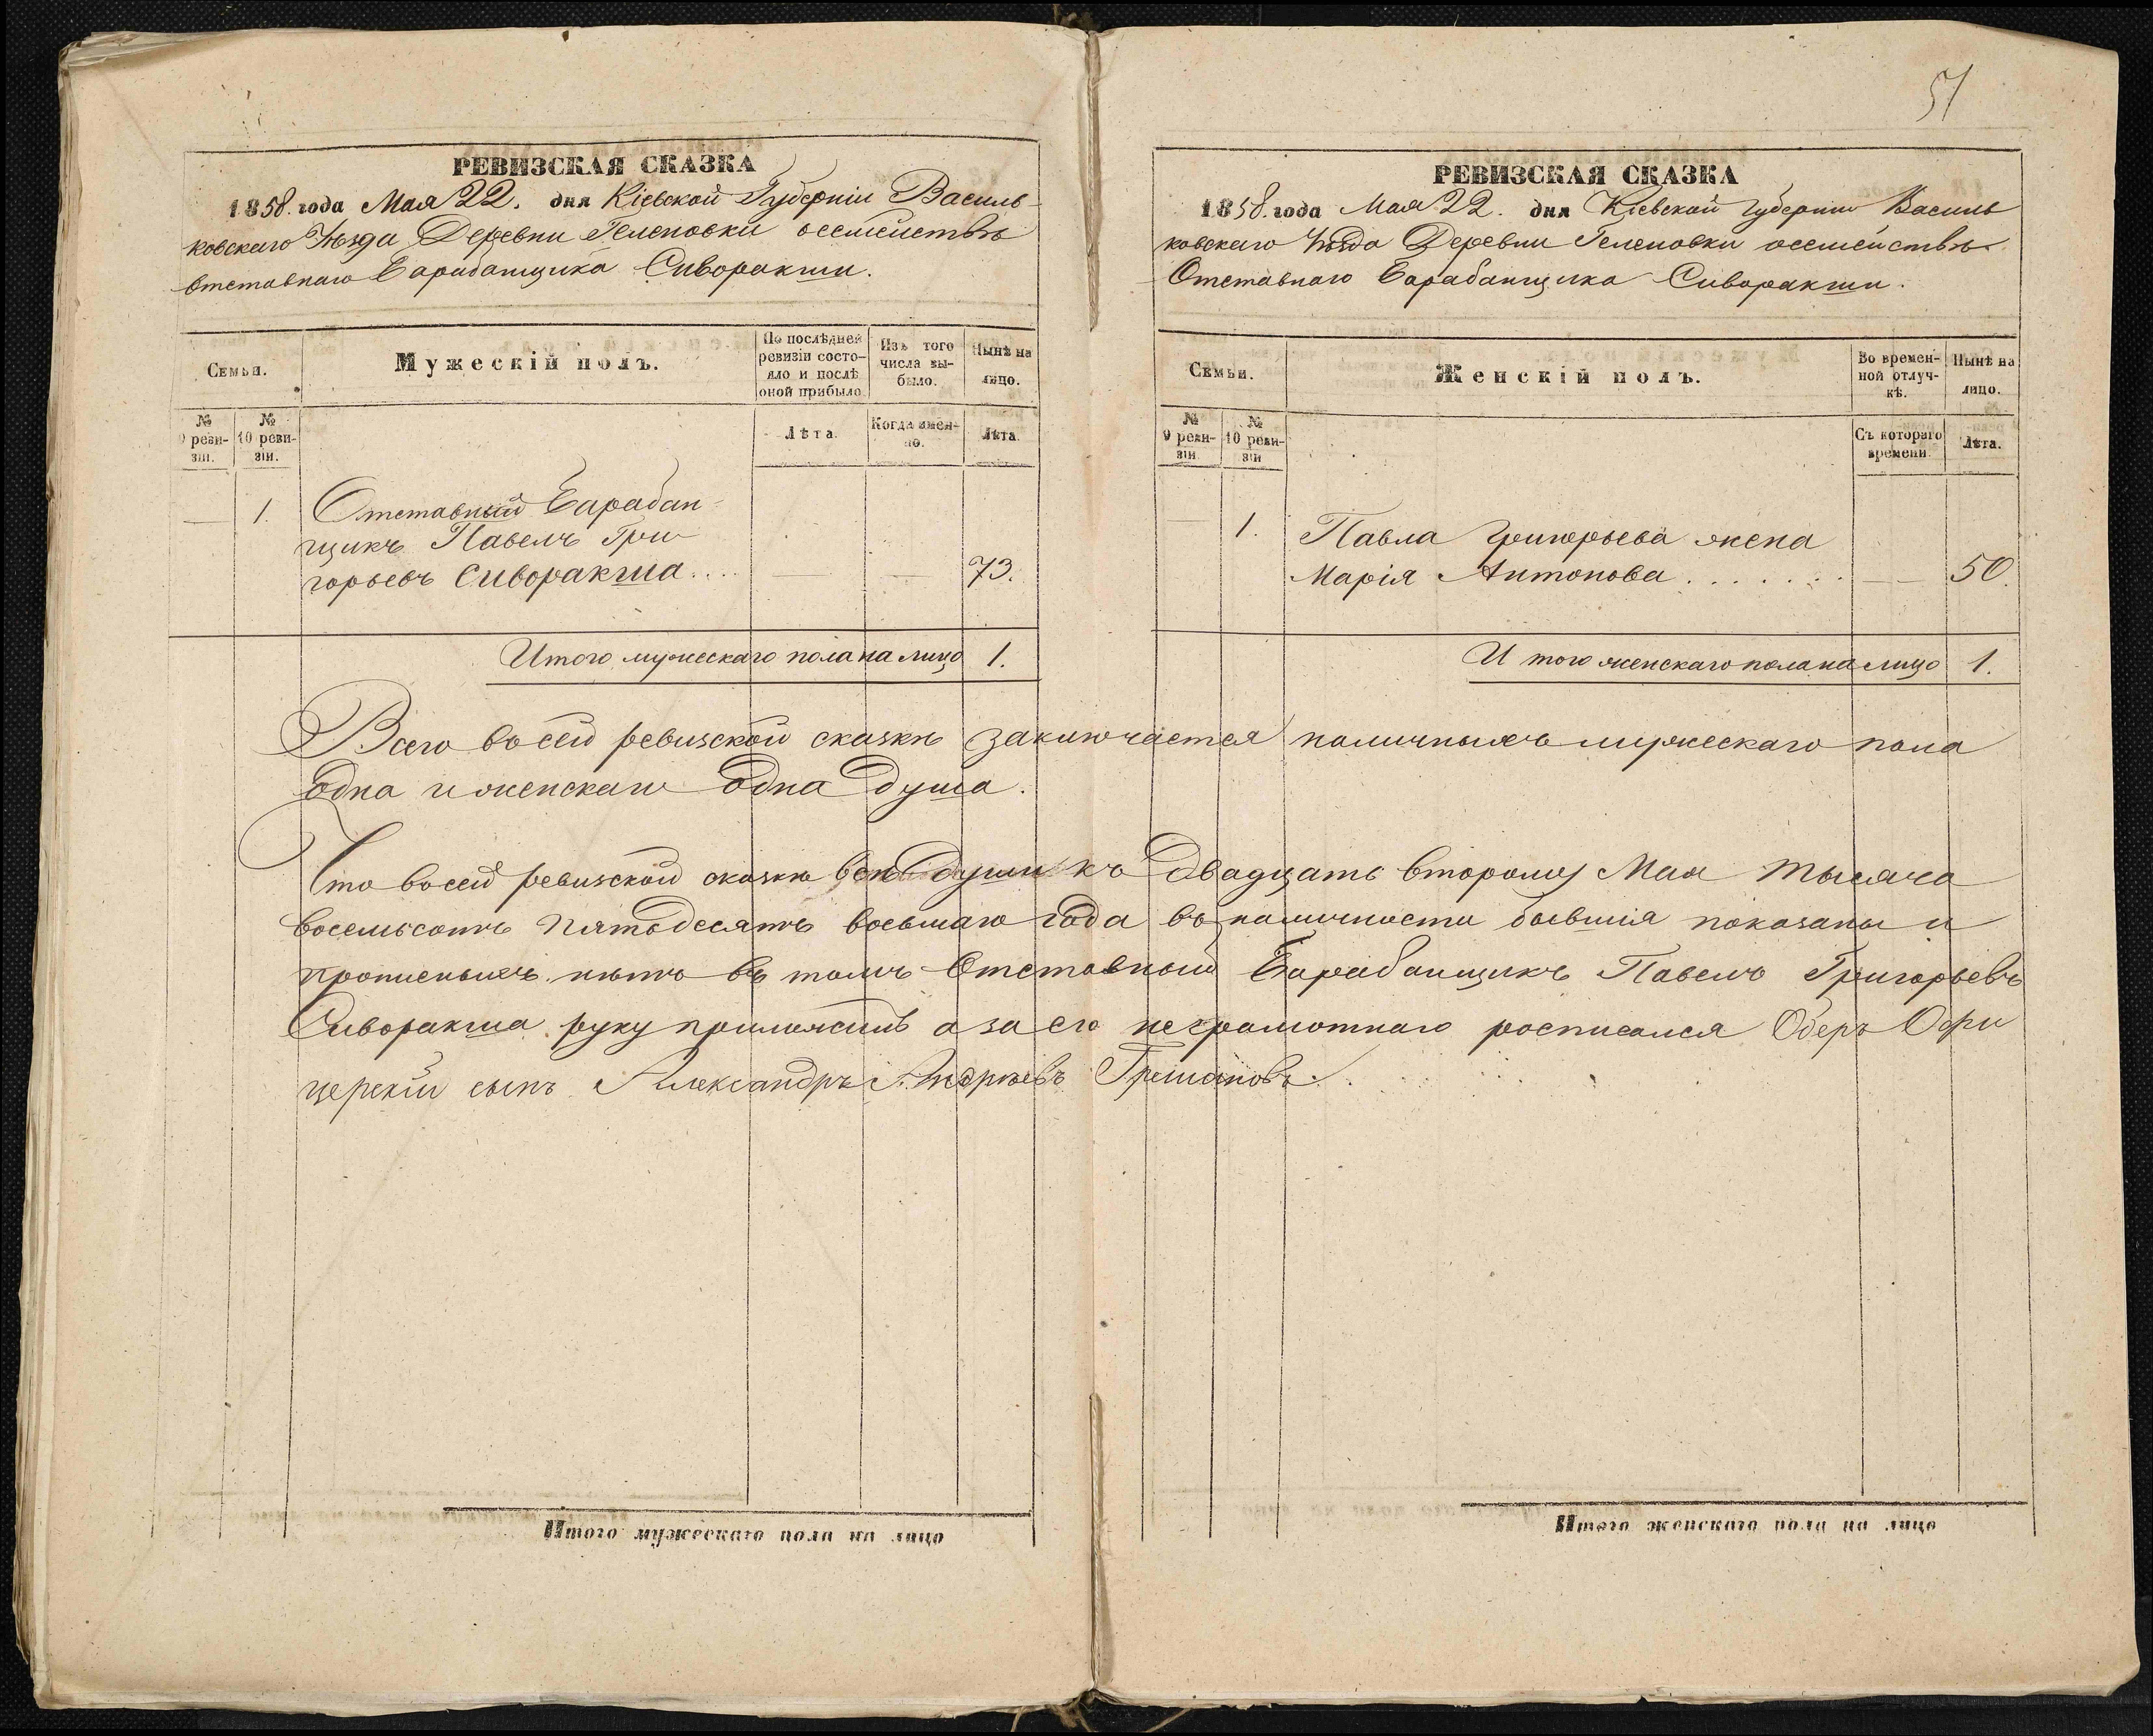 РЕВИЗСКАЯ СКАЗКА
1858. года Мая 22. дня Кіевской Губерніи Василь-
ковскаго Уѣзда Деревни Теленовки осемействѣ
отставнаго Барабанщика Сиворакши.
Семьи.
Мужескій полъ.
По послѣдней
ревизіи состо-
яло и послѣ
оной прибыло.
Изъ того
числа вы-
было.
Нынѣ на
лицо.
№
9 реви-
зіи.
№
10 реви-
зіи.
Лѣта.
Когда имен-
но.
Лѣта.
— 1. Отставный Барабан-
щикъ Павелъ Гри-
горьевъ Сиворакша.... — — 73.
Итого мужескаго пола на лицо 1.
51
РЕВИЗСКАЯ СКАЗКА
1858. года Мая 22. дня Кіевской Губерніи Василь
ковскаго Уѣзда Деревни Теленовки осемействѣ
Отставнаго Барабанщика Сиворакши.
Семьи.
Женскій полъ.
Во времен-
ной отлуч-
кѣ.
Нынѣ на
лицо.
№
9 реви-
зіи
№
10 реви-
зіи
Съ котораго
времени.
Лѣта.
— 1. Павла Григорьева жена
Марія Антонова....... — 50.
Итого женскаго пола на лицо 1.
Всего восей ревизской сказкѣ заключается наличныхъ мужескаго пола
одна и женскаго одна душа.
Что восей ревизской сказкѣ всѣ души къ двадцать второму Мая тысяча
восемьсотъ пятьдесятъ восьмаго года въ наличности бывшія показаны и
прописныхъ нѣтъ въ томъ Отставный Барабанщикъ Павелъ Григорьевъ
Сиворакша руку приложилъ а за его неграмотнаго росписался Оберъ Офи
церскій сынъ Александръ Андрѣевъ
Итого мужескаго пола на лицо
Итого женскаго пола на лицо